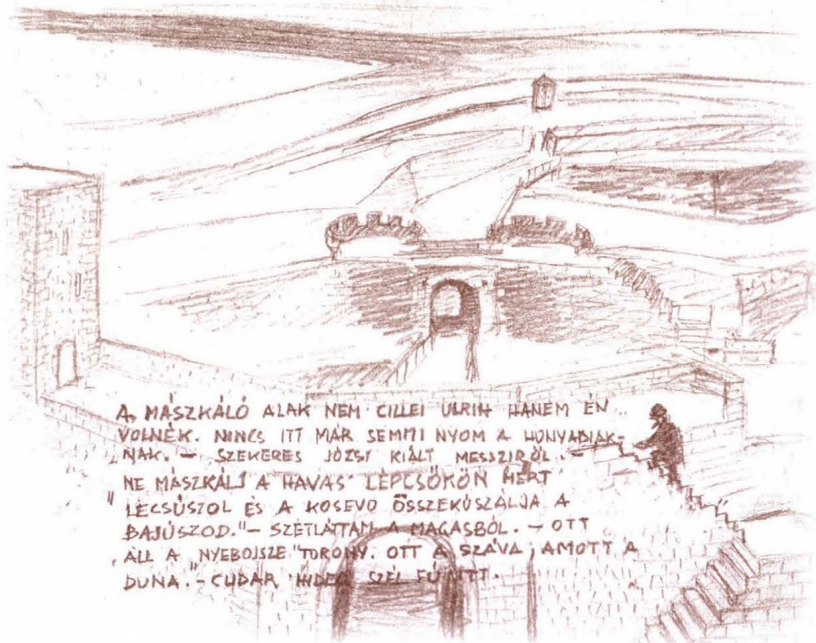 A MÁSZKÁLÓ ALAK NEM CILLEI ULRIH HANEM ÉN
VOLNÉK. NINCS ITT MÁR SEMMI NYOM A HUNYADIAK-
NAK. — SZEKERES JÓZSI KIÁLT MESSZIRŐL. —
"NE MÁSZKÁLJ A HAVAS LÉPCSŐKÖN MERT
LECSÚSZOL ÉS A KOSEVO ÖSSZEKÚSZÁLJA A
BAJÚSZOD." — SZÉTLÁTTAM A MAGASBÓL. — OTT
ÁLL A "NYEBOJSZE" TORONY. OTT A SZÁVA, AMOTT A
DUNA. — CUDAR HIDEG SZÉL FÚ ITT.